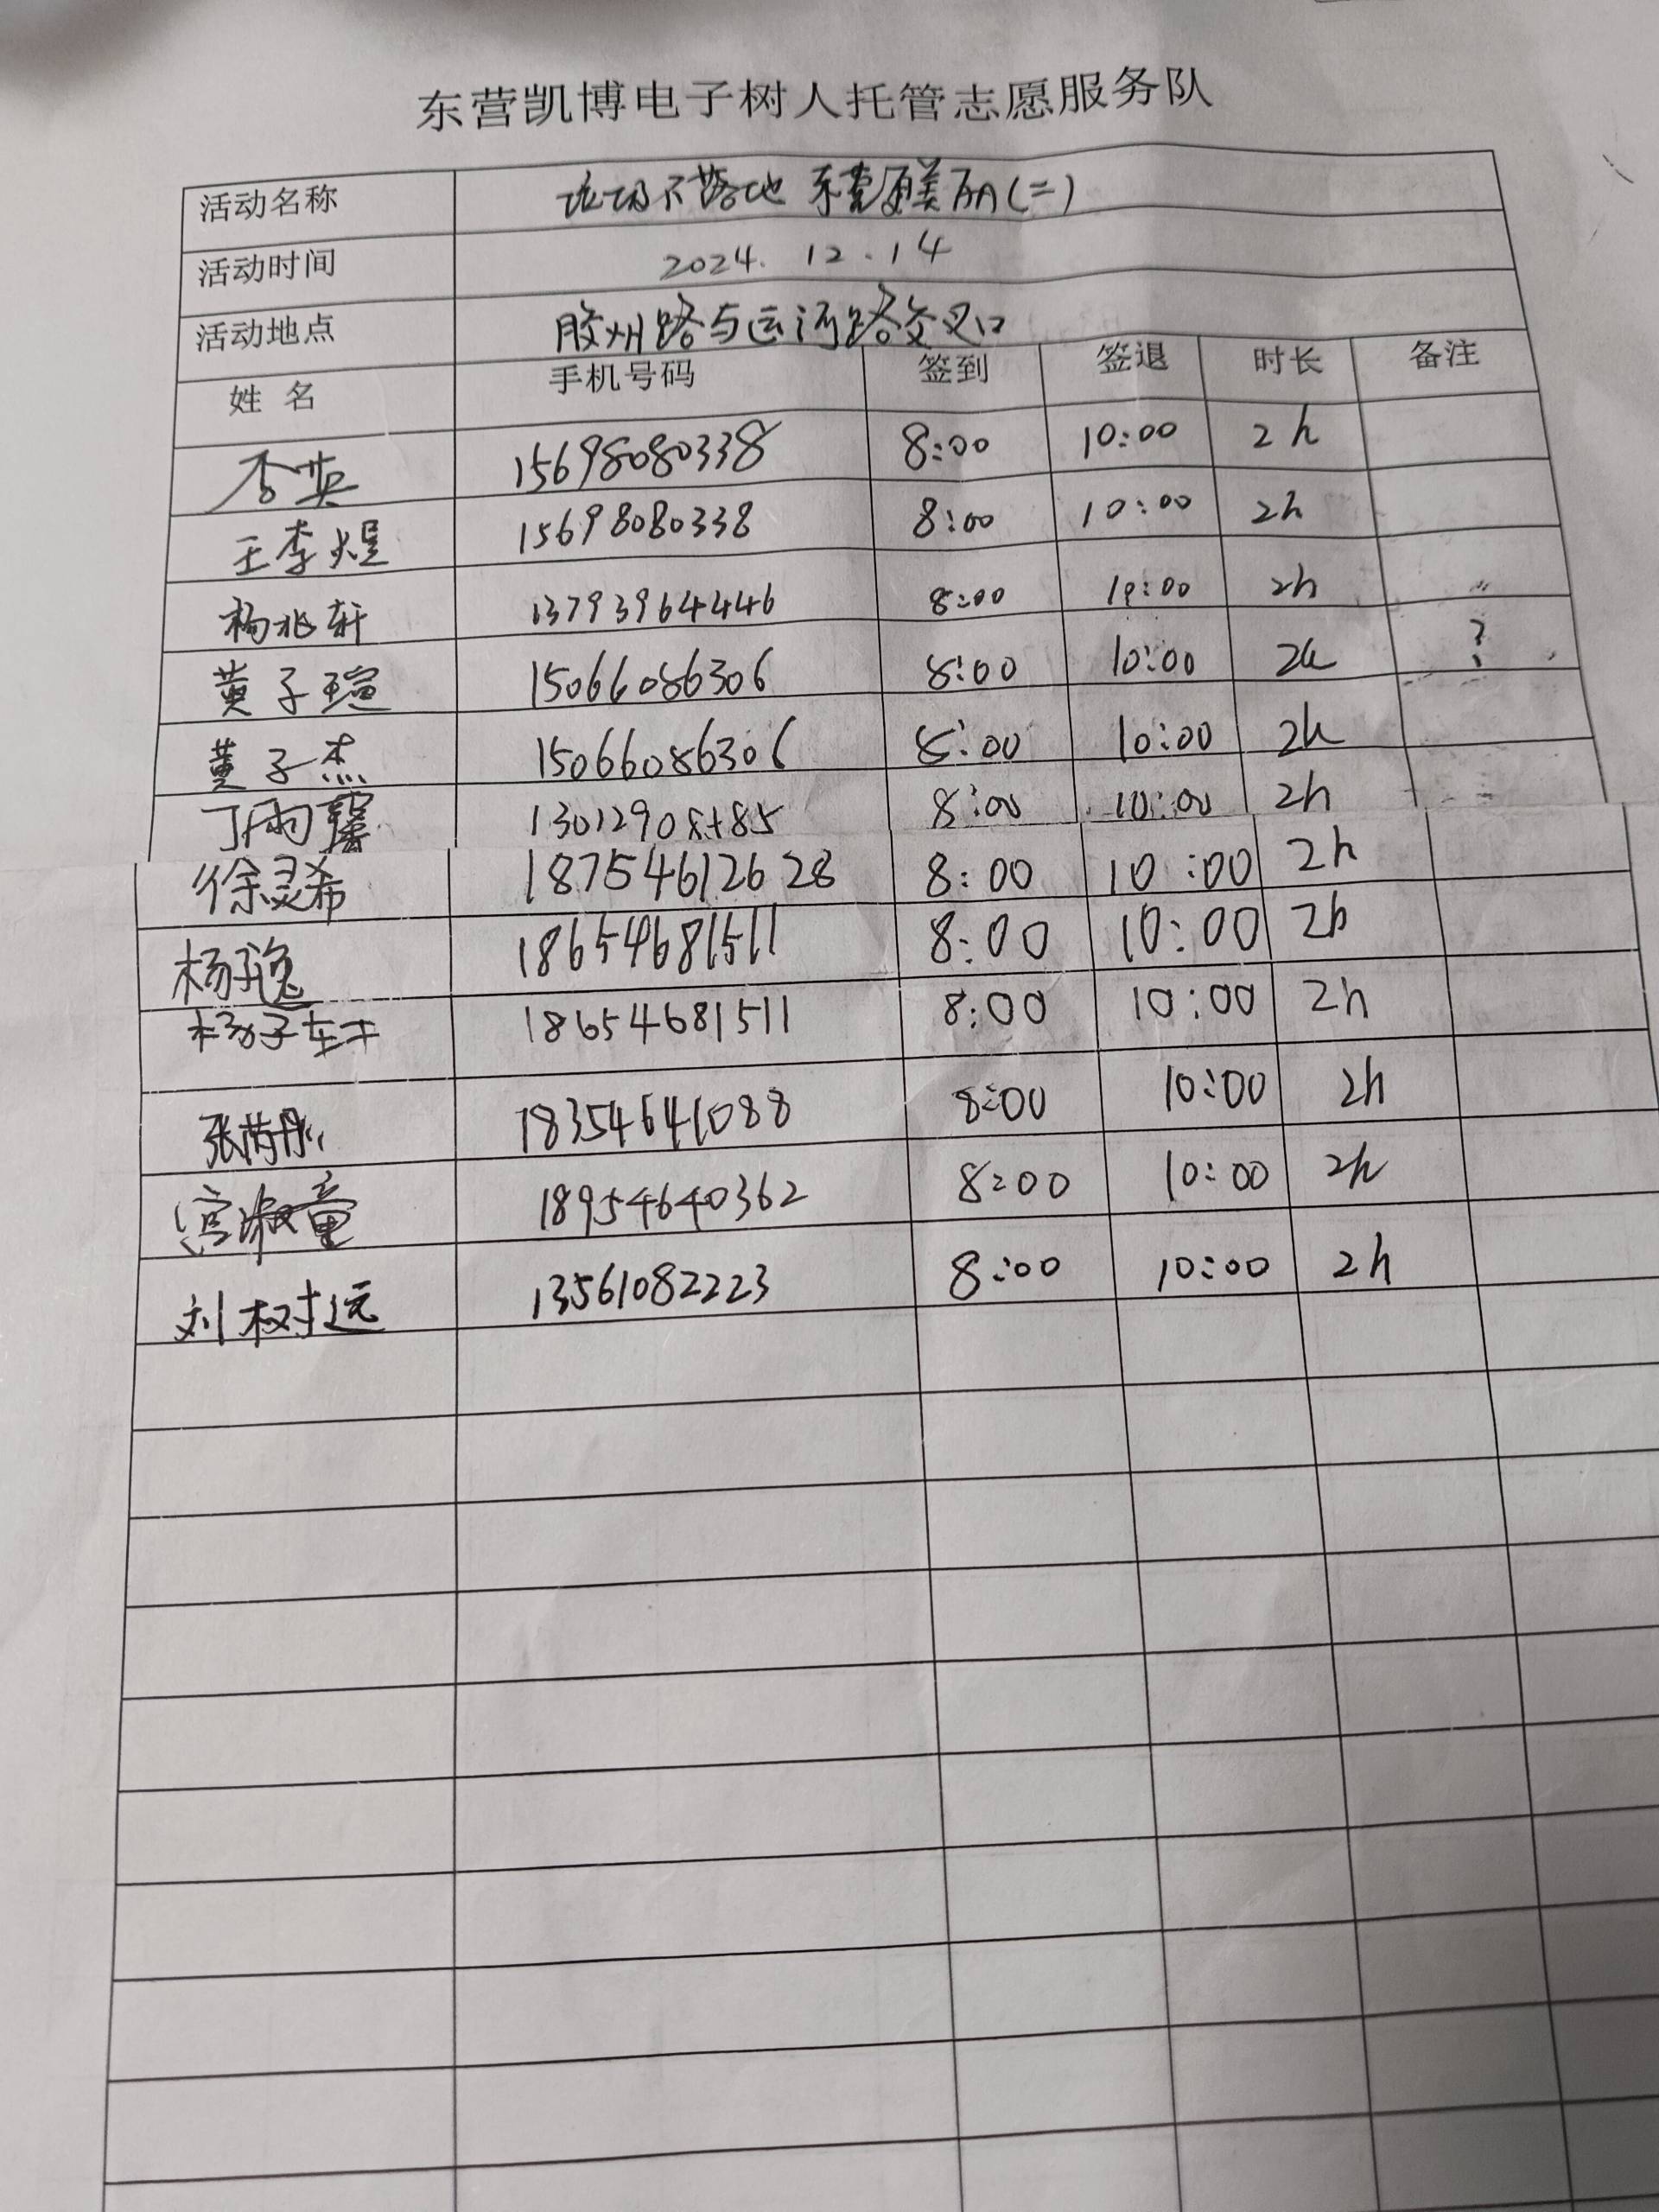 东营凯博电子树人托管志愿服务队
活动名称 垃圾不落地 东营更美丽(二)
活动时间 2024.12.14
活动地点 胶州路与运河路交叉口
姓名 手机号码 签到 签退 时长 备注
李英 15698080338 8:00 10:00 2h
王李煜 15698080338 8:00 10:00 2h
杨兆轩 13793964446 8:00 10:00 2h
黄子瑄 15066086306 8:00 10:00 2h
黄子杰 15066086306 8:00 10:00 2h
丁雨馨 8:00 10:00 2h
徐灵希 18754612628 8:00 10:00 2h
杨子逸 18654681511 8:00 10:00 2h
杨子轩 18654681511 8:00 10:00 2h
张芮彤 18354641088 8:00 10:00 2h
宫淑童 18954640362 8:00 10:00 2h
刘树远 13561082223 8:00 10:00 2h